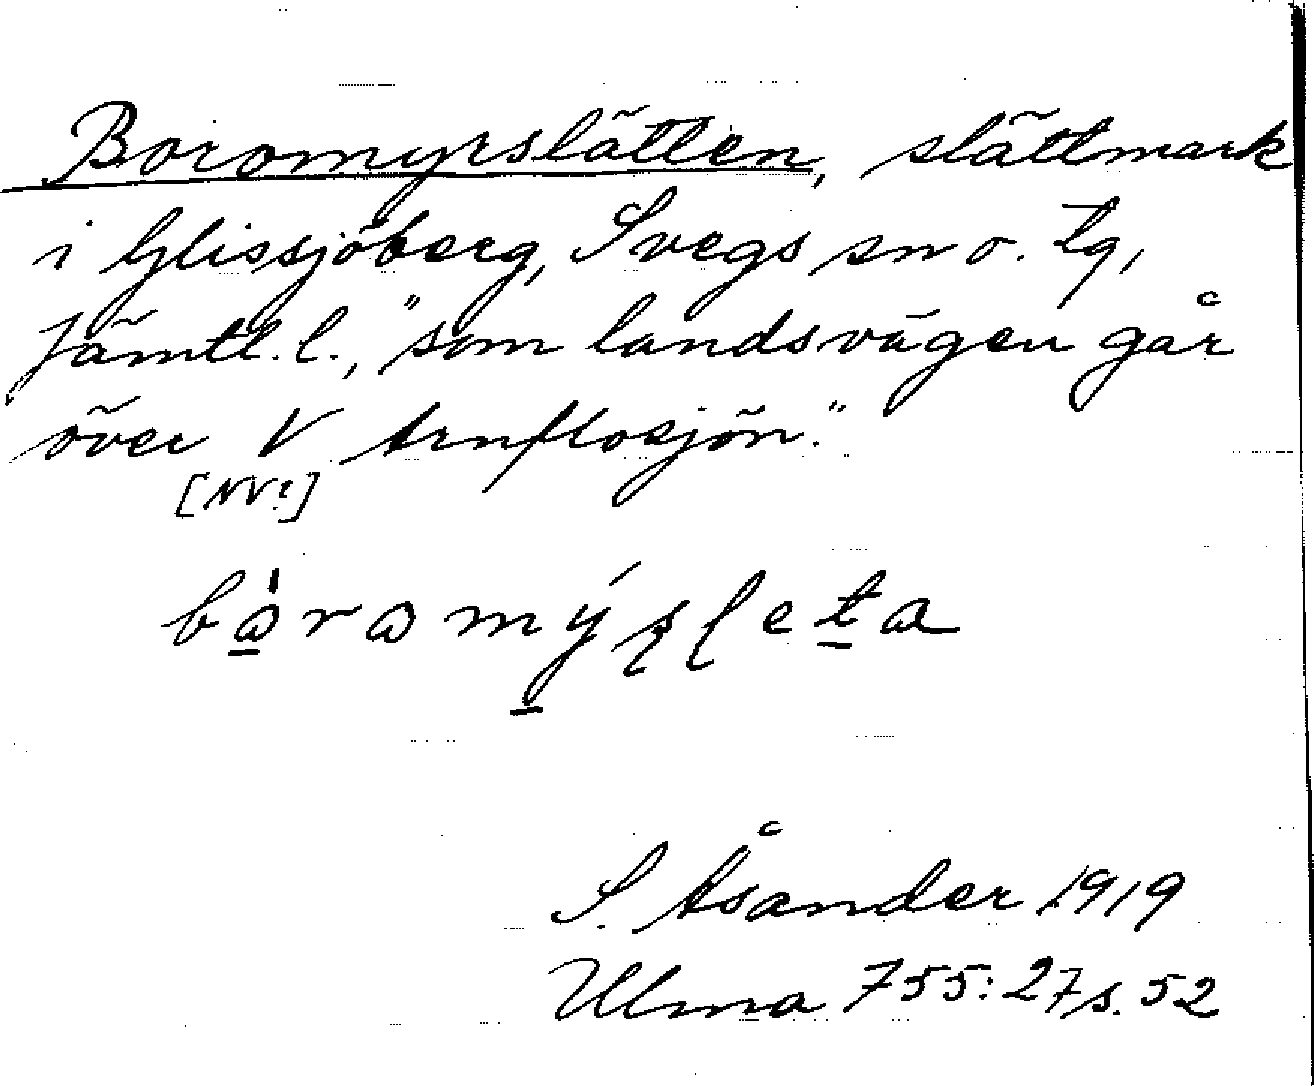 Boromyrslätten, slättmark
i Glissjöberg, Svegs sn o. tg,
Jämtl. l., "som landsvägen går
över V Arnflosjön."
[NV?]
båramýsleta
S. Åsander 1919
Ulma 755:27 s. 52